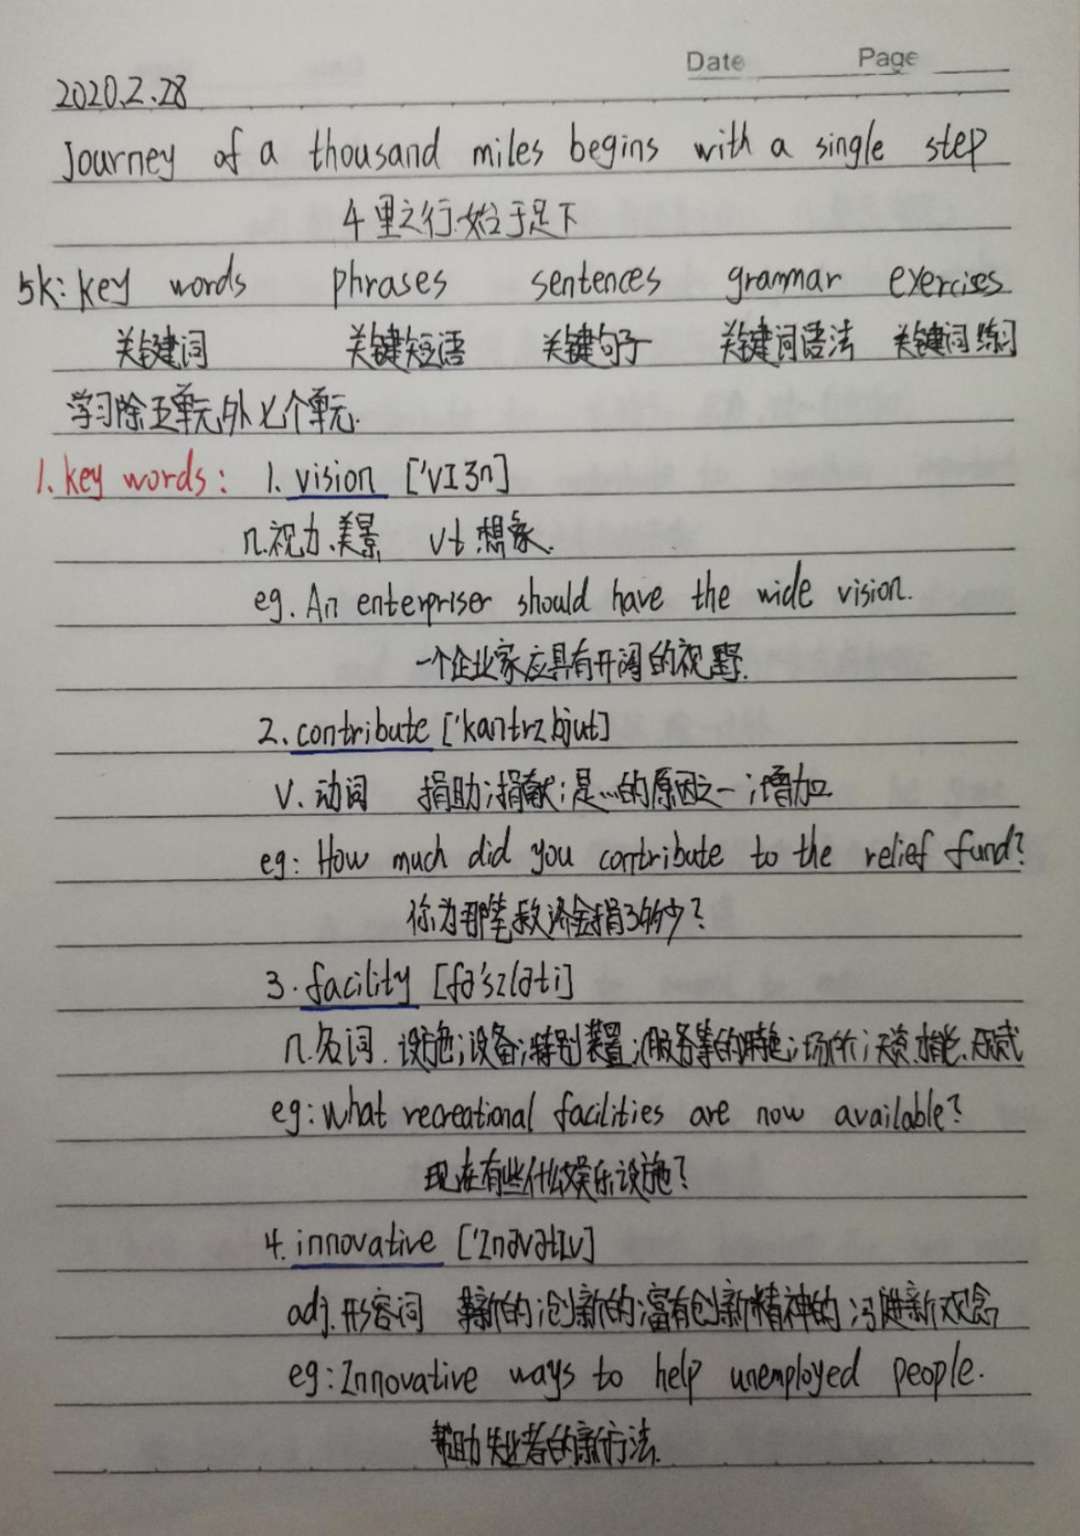 Date Page
2020.2.28
Journey of a thousand miles begins with a single step
千里之行.始于足下
5k: key words phrases sentences grammar exercises
关键词 关键短语 关键句子 关键词语法 关键词练习
学习除五单元外七个单元.
1. key words: 1. vision ['vIʒn]
n.视力、美景 vt 想象.
eg. An enterpriser should have the wide vision.
一个企业家应具有开阔的视野.
2. contribute ['kantrɪbjut]
v. 动词 捐助;捐献;是...的原因之一;增加
eg: How much did you contribute to the relief fund?
你为那笔救济金捐了多少?
3. facility [fə'sɪləti]
n.名词. 设施;设备;特别装置;(服务等的)特色;场所;天资.才能、
eg: what recreational facilities are now available?
现在有些什么娱乐设施?
4. innovative ['ɪnəvətɪv]
adj.形容词 革新的;创新的;富有创新精神的;引进新观念
eg: Innovative ways to help unemployed people.
帮助失业者的新方法.